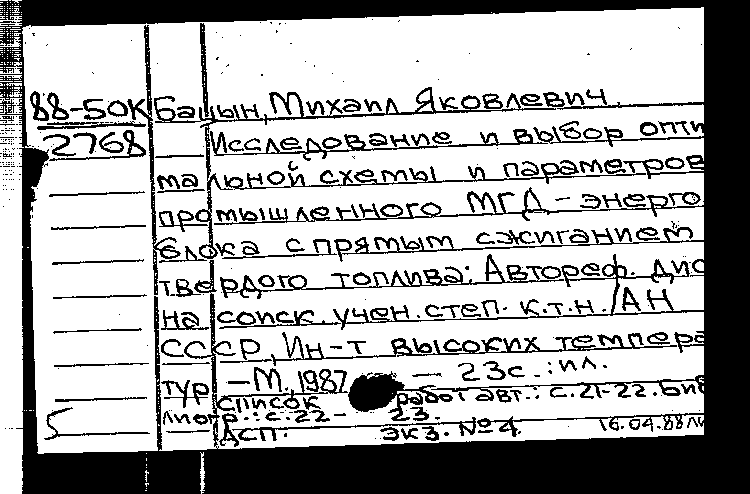 88-50К Бацын, Михаил Яковлевич.
2768 Исследование и выбор опти
мальной схемы и параметров
промышленного МГД – энерго
блока с прямым сжиганием
твердого топлива: Автореф. дис
на соиск. учен. степ. к.т.н. /АН
СССР, Ин-т высоких темпера
тур – М., 1987 – 23с.: ил.
список работ авт.: с.21-22. Биб
лиогр.: с.22- 23.
5 ДСП. экз. №4 16.04.88